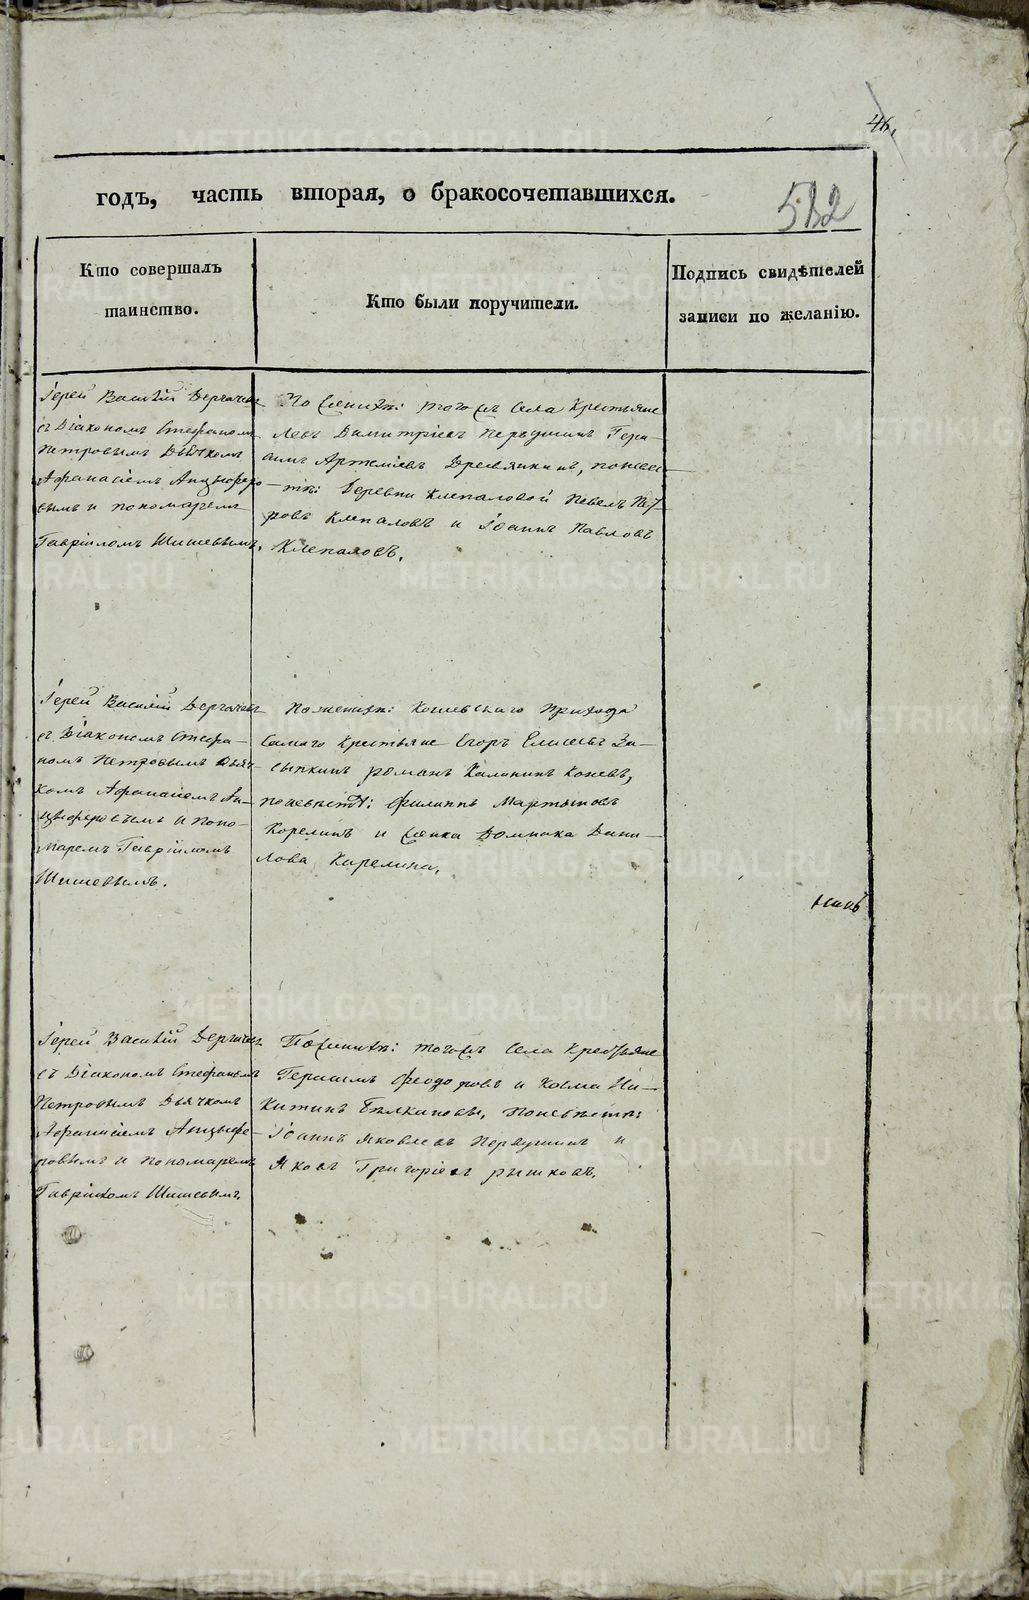 46.
годъ, часть вторая, о бракосочетавшихся.
582
Кто совершалъ
таинство.
Кто были поручители.
Подпись свидѣтелей
записи по желанію.
Іерей Василій Дергачевъ
съ Діакономъ Стефаномъ
Петровымъ Дьячкомъ
Афанасіемъ Анцыферо-
вымъ и пономаремъ
Гавріиломъ Шишевымъ.
По женихѣ: тогожъ села Крестьяне
Левъ Димитріевъ Первушинъ Гера-
симъ Артеміевъ Древянкинъ, поневѣс-
тѣ: Деревни Клепаловой Павелъ Пет-
ровъ Клепаловъ и Іоаннъ Павловъ
Клепаловъ.
Іерей Василій Дергачевъ
съ Діакономъ Стефа-
номъ Петровымъ Дьяч-
комъ Афанасіемъ Ан-
цыферовымъ и Поно-
маремъ Гавріиломъ
Шишевымъ.
Поженихѣ: прихода
Крестьяне Егоръ Елисеевъ За-
сыпкинъ Романъ Калининъ Коневъ,
поневѣстѣ: Филиппъ Мартыновъ
Корелинъ и Домника Дани-
лова Карелина.
Іерей Василій Дергачевъ
съ Діакономъ Стефаномъ
Петровымъ Дьячкомъ
Афанасіемъ Анцыфе-
ровымъ и пономаремъ
Гавріиломъ Шишевымъ.
Поженихѣ: тогожъ села Крестьяне
Герасимъ Феодоровъ и Козма Ни-
китинъ Бѣлкиновы, Поневѣстѣ:
Іоаннъ Яковлевъ Первушинъ и
Яковъ Григоріевъ Рышковъ.